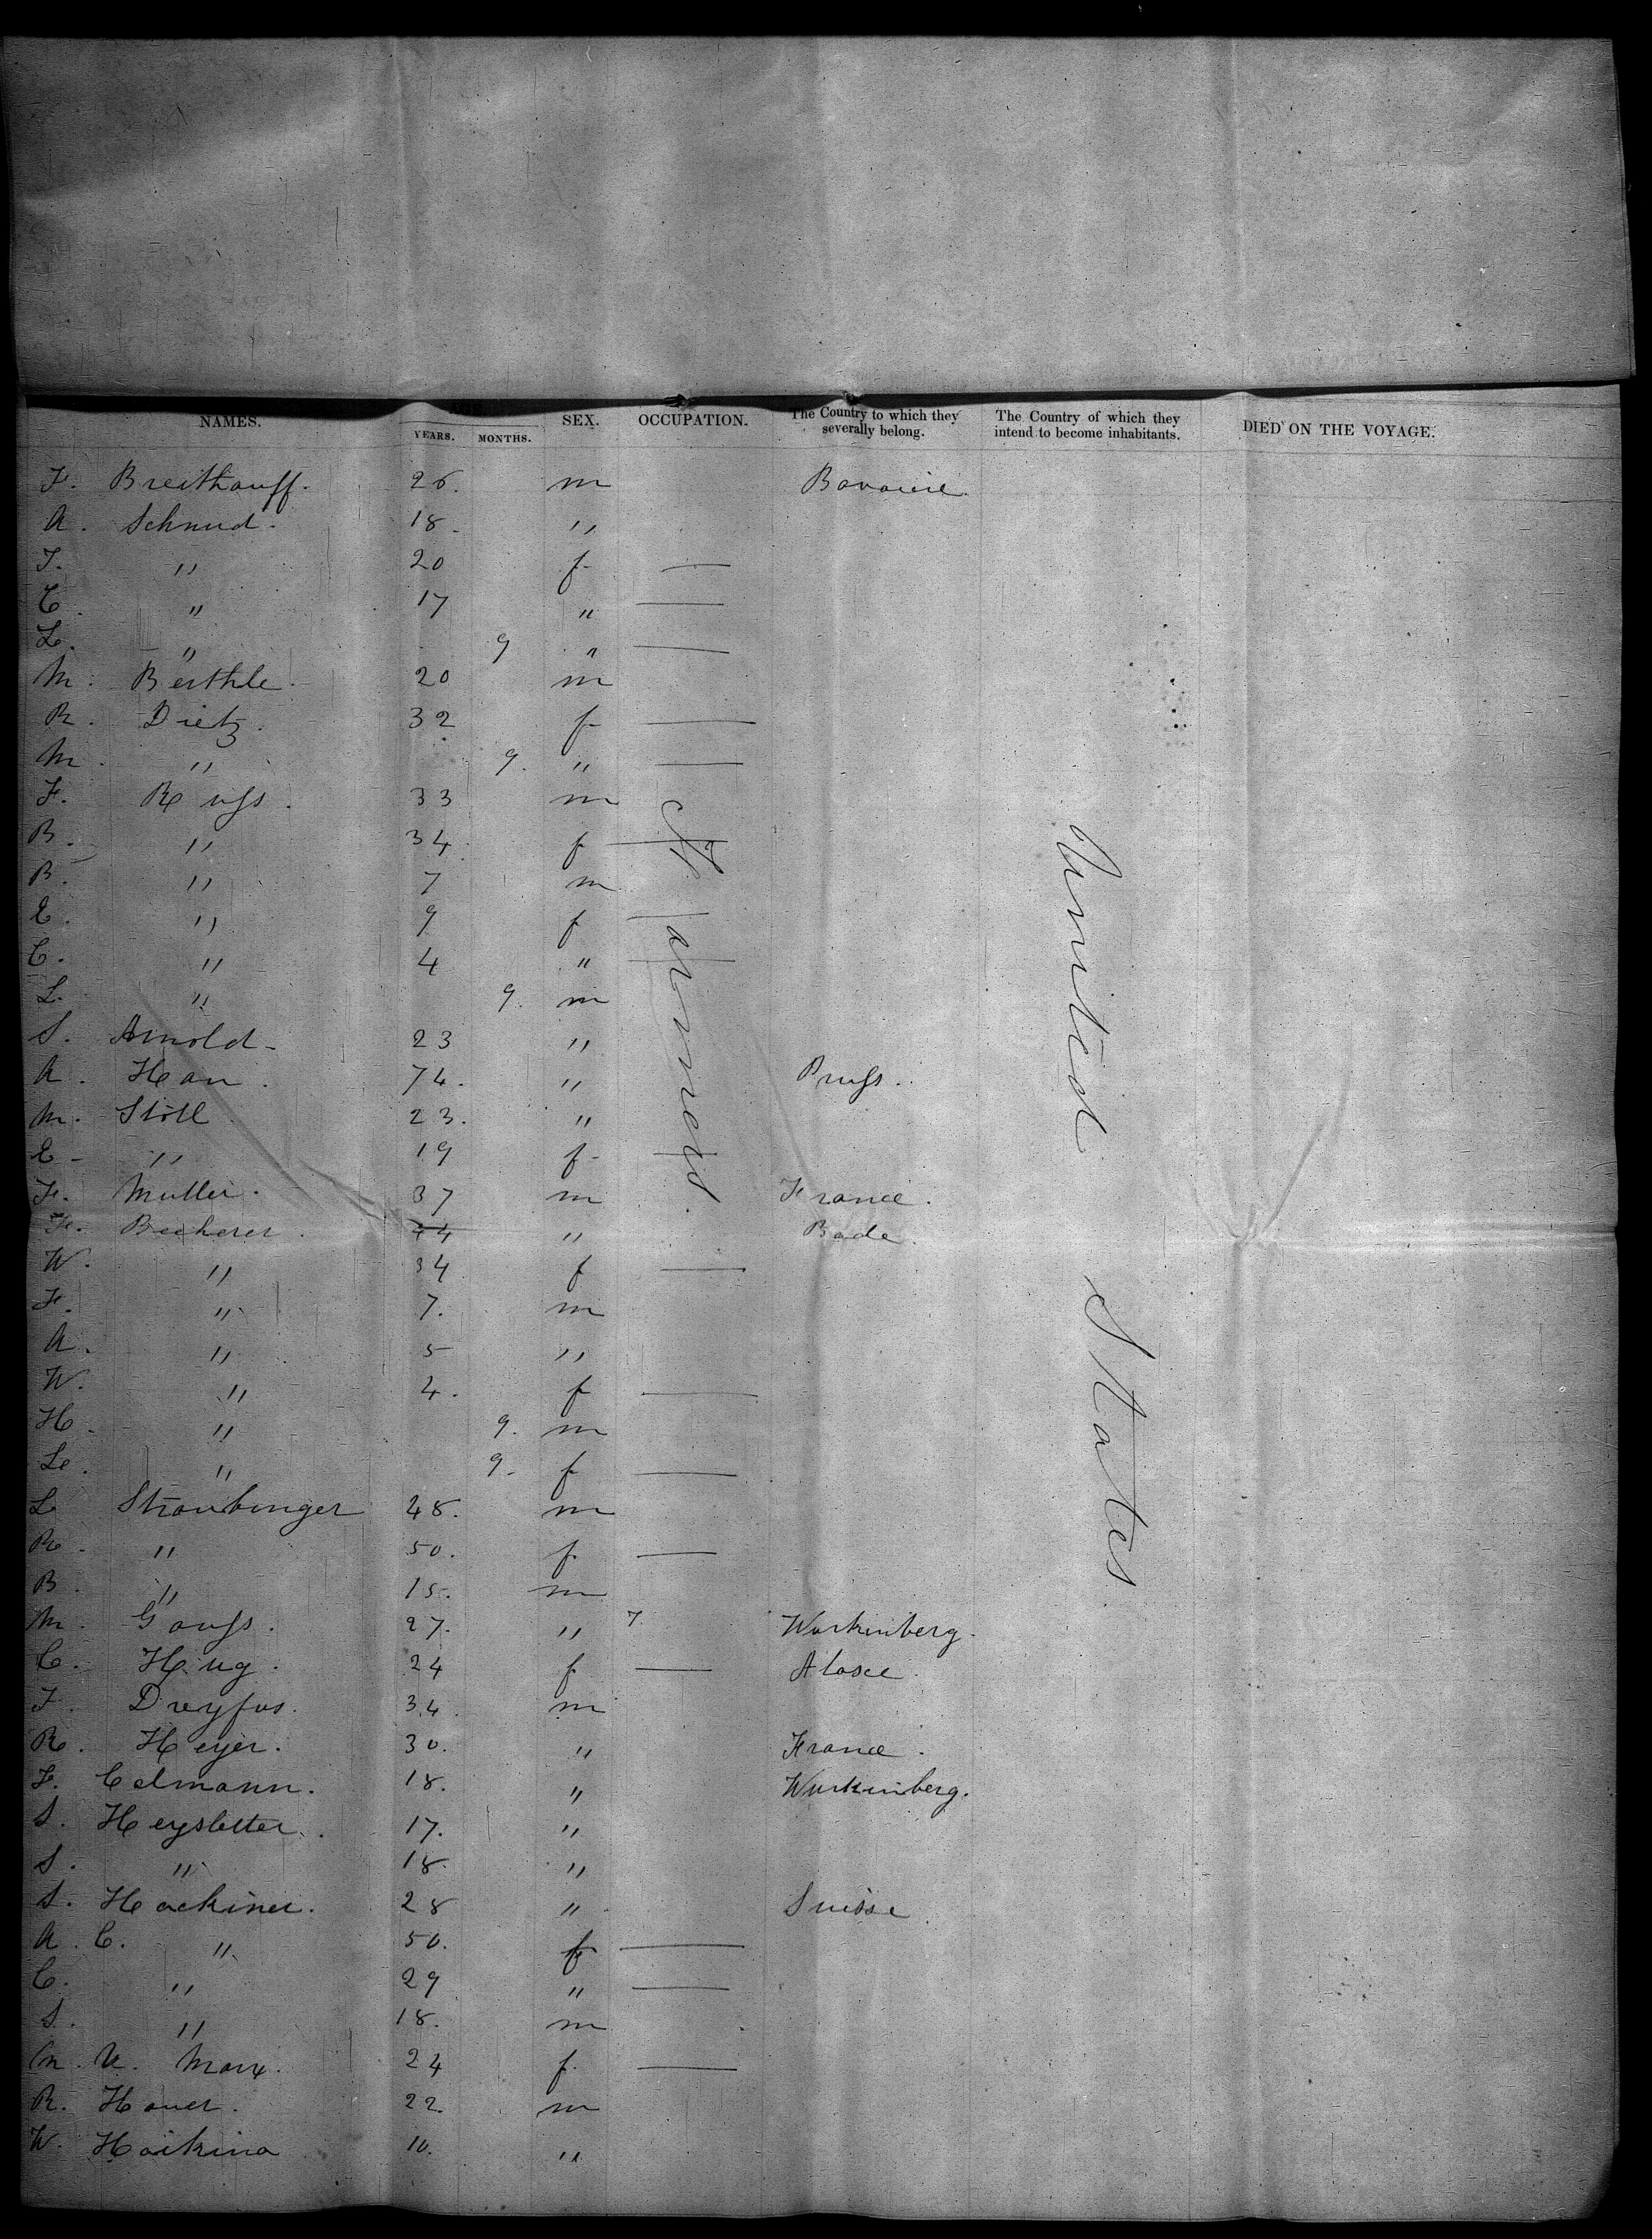 NAMES. YEARS. MONTHS. SEX. OCCUPATION. The Country to which they severally belong. The Country of which they intend to become inhabitants. DIED ON THE VOYAGE.
F. Breithauff. 26. m Bavaiere.
A. Schmid. 18. "
T. " 20 f —
C. " 17 " —
L. " 9 " —
M. Berthle. 20 m
R. Dietz. 32 f —
M. " 9. " —
F. Russ. 33 m
B. " 34 f —
B. " 7 m
E. " 9 f —
C. " 4 " —
L. " 9. m
S. Arnold. 23 "
A. Han. 74. " Pruss.
M. Stoll 23. "
E. " 19 f —
F. Muller. 37 m France.
F. Becherer. 44 " Bade.
W. " 34 f —
F. " 7. m
A. " 5 "
W. " 4. f —
H. " 9. m
Le. " 9. f —
L. Straubinger 48. m
R. " 50. f —
B. " 15. m
M. Gauss. 27. " 7. Wurtemberg.
C. Hug. 24 f — Alsace.
F. Dreyfus. 34. m
R. Heyer. 30. " France.
F. Celmann. 18. " Wurtemberg.
S. Heystetter. 17. "
S. " 18. "
S. Hackiner. 28 " Suisse
A. C. " 50. f —
C. " 29 " —
S. " 18. m
M. A. Marx. 24 f. —
R. Hauer. 22. m
W. Haikina 10. "
Farmers.
United States